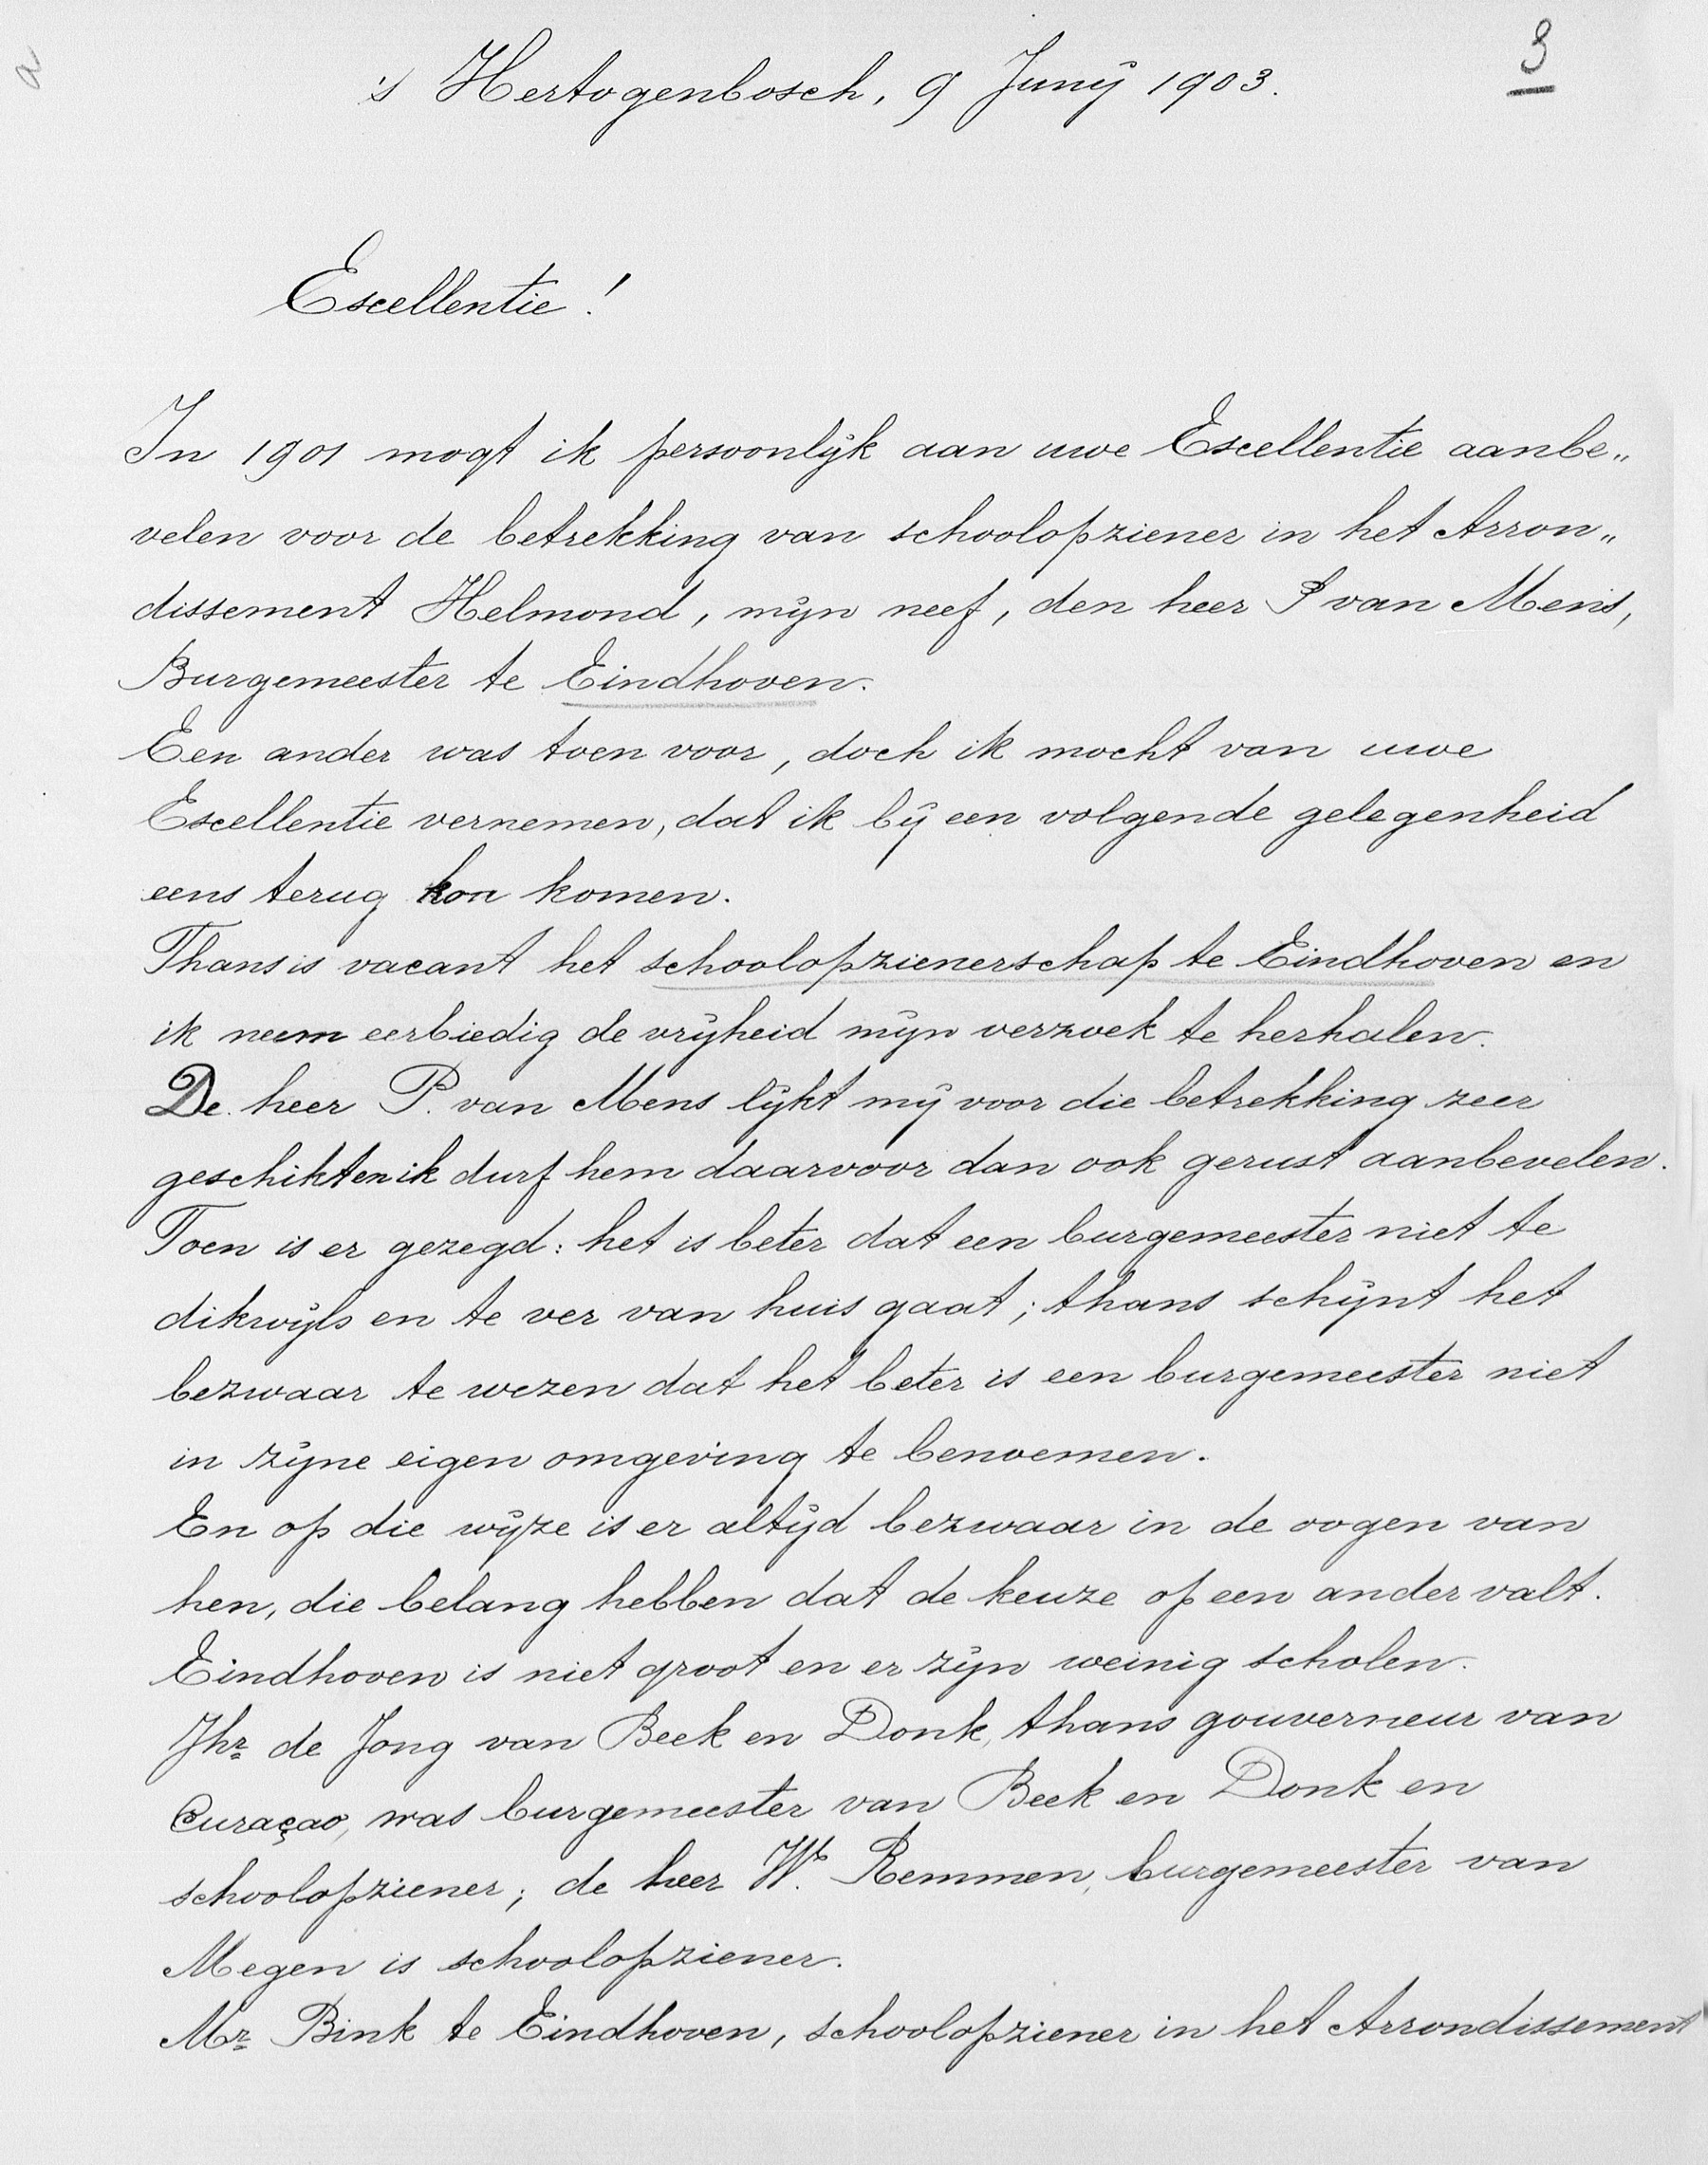 a
3
's Hertogenbosch, 9 Junij 1903.
Excellentie!
In 1901 mogt ik persoonlijk aan uwe Excellentie aanbe„
velen voor de betrekking van schoolopziener in het Arron„
dissement Helmond, mijn neef, den heer P van Mens,
Burgemeester te Eindhoven.
Een ander was toen voor, doch ik mocht van uwe
Excellentie vernemen, dat ik bij een volgende gelegenheid
eens terug kon komen.
Thans is vacant het schoolopzienerschap te Eindhoven en
ik neem eerbiedig de vrijheid mijn verzoek te herhalen.
De heer P. van Mens lijkt mij voor die betrekking zeer
geschikt en ik durf hem daarvoor dan ook gerust aanbevelen.
Toen is er gezegd: het is beter dat een burgemeester niet te
dikwijls en te ver van huis gaat; thans schijnt het
bezwaar te wezen dat het beter is een burgemeester niet
in zijne eigen omgeving te benoemen.
En op die wijze is er altijd bezwaar in de oogen van
hen, die belang hebben dat de keuze op een ander valt.
Eindhoven is niet groot en er zijn weinig scholen.
Jhr de Jong van Beek en Donk, thans gouverneur van
Curaçao, was burgemeester van Beek en Donk en
schoolopziener; de heer W. Remmen, burgemeester van
Megen is schoolopziener.
Mr Bink te Eindhoven, schoolopziener in het Arrondissement